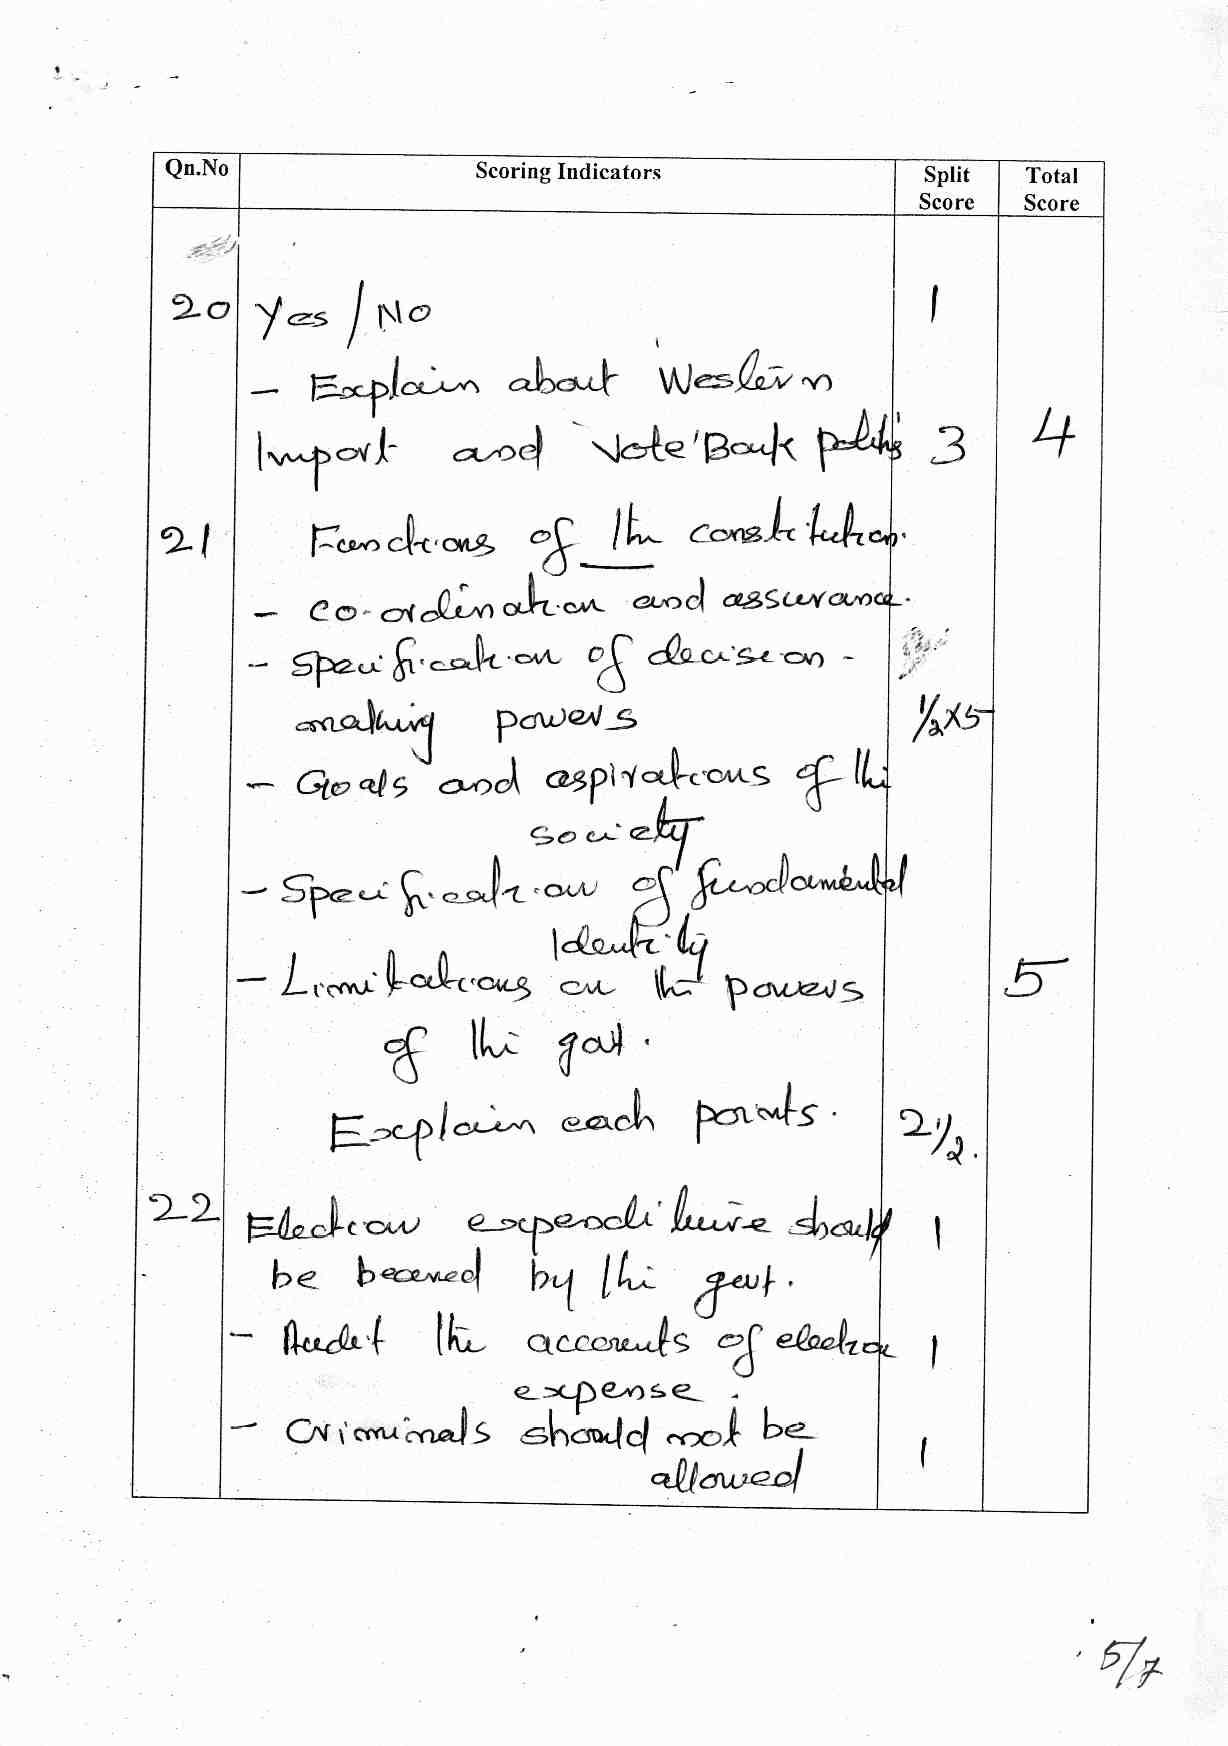 Qn.No Scoring Indicators Split Score Total Score
20 Yes / No 1
- Explain about Western
Import and Vote Bank politics 3 4
21 Functions of the constitution.
- Co-ordination and assurance.
- Specification of decision -
making powers 1/2x5
- Goals and aspirations of the
society
- Specification of fundamental
Identity
- Limitations on the powers 5
of the govt.
Explain each points. 2 1/2.
22 Election expenditure should 1
be beared by the govt.
- Audit the accounts of election 1
expense.
- Criminals should not be 1
allowed
5/7